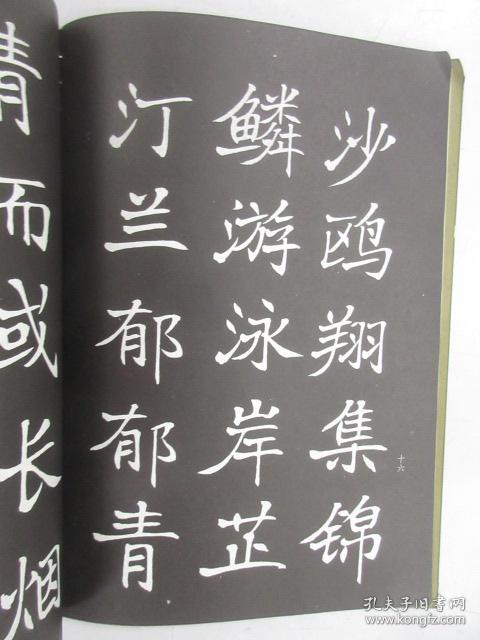 沙鸥翔集锦
鳞游泳岸芷
汀兰郁郁青
十六
青而或长烟
孔夫子旧书网
kongfz.com